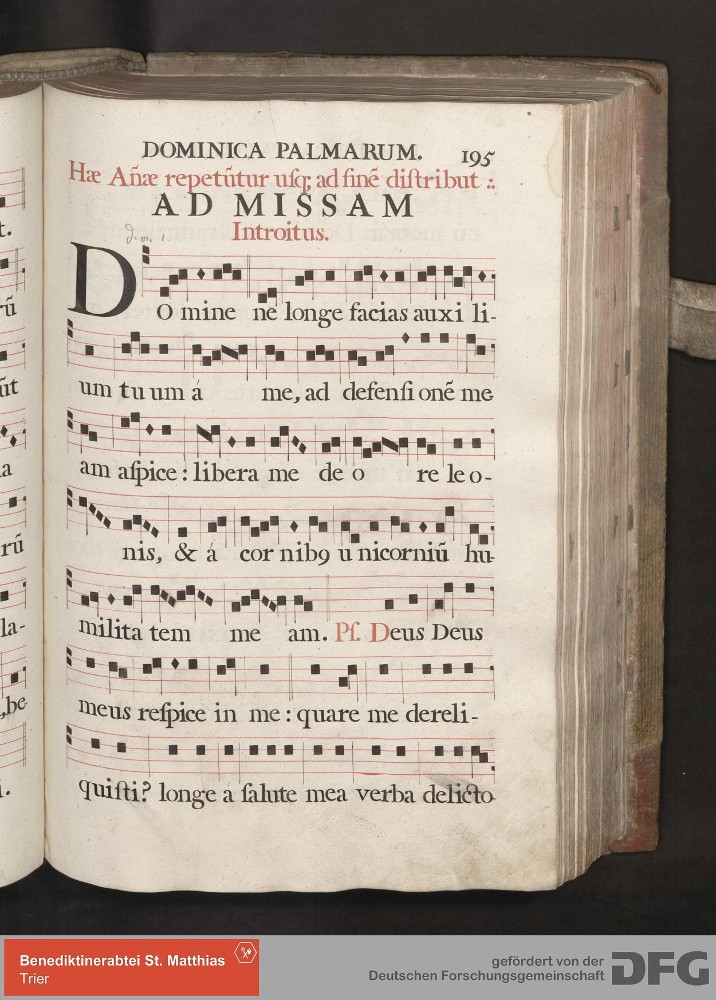 DOMINICA PALMARUM. 195
Hæ Añæ repetũtur uſq; ad finẽ diſtribut .:
AD MISSAM
Introitus.
DO mine ne longe facias auxi li-
um tu um á me, ad defenſi onẽ me
am aſpice : libera me de o re le o-
nis, & á cor nib9 u nicorniũ hu-
milita tem me am. Pſ. Deus Deus
meus reſpice in me : quare me dereli-
quiſti? longe á ſalute mea verba delicto
t.
rũ
ũt
a
rũ
la-
,be
i.
Benediktinerabtei St. Matthias
Trier
gefördert von der
Deutschen Forschungsgemeinschaft
DFG